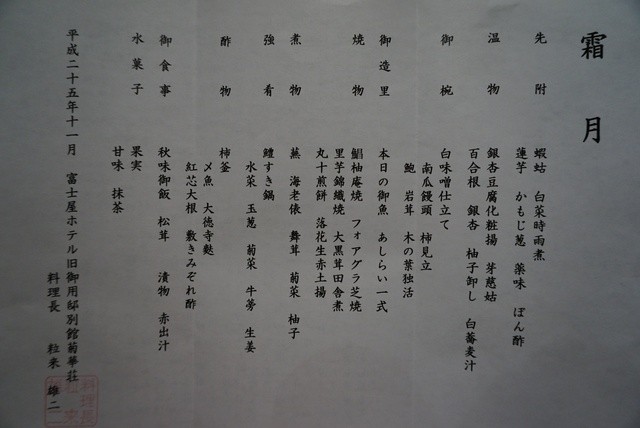 霜月
先附
蝦蛄 白菜時雨煮
蓮芋 かもじ葱 薬味 ぽん酢
温物
銀杏豆腐化粧揚 芽慈姑
百合根 銀杏 柚子卸し 白蕎麦汁
御椀
白味噌仕立て
南瓜饅頭 柿見立
鮑 岩茸 木の葉独活
御造里
本日の御魚 あしらい一式
焼物
鯧柚庵焼 フォアグラ芝焼
里芋錦織焼 大黒茸田舎煮
丸十煎餅 落花生赤土揚
煮物
蕪 海老俵 舞茸 菊菜 柚子
強肴
鱧すき鍋
水菜 玉葱 菊菜 牛蒡 生姜
酢物
柿釜
〆魚 大徳寺麩
紅芯大根 敷きみぞれ酢
御食事
秋味御飯 松茸 漬物 赤出汁
水菓子
果実
甘味 抹茶
平成二十五年十一月 富士屋ホテル旧御用邸別館菊華荘
料理長 粒来 雄二